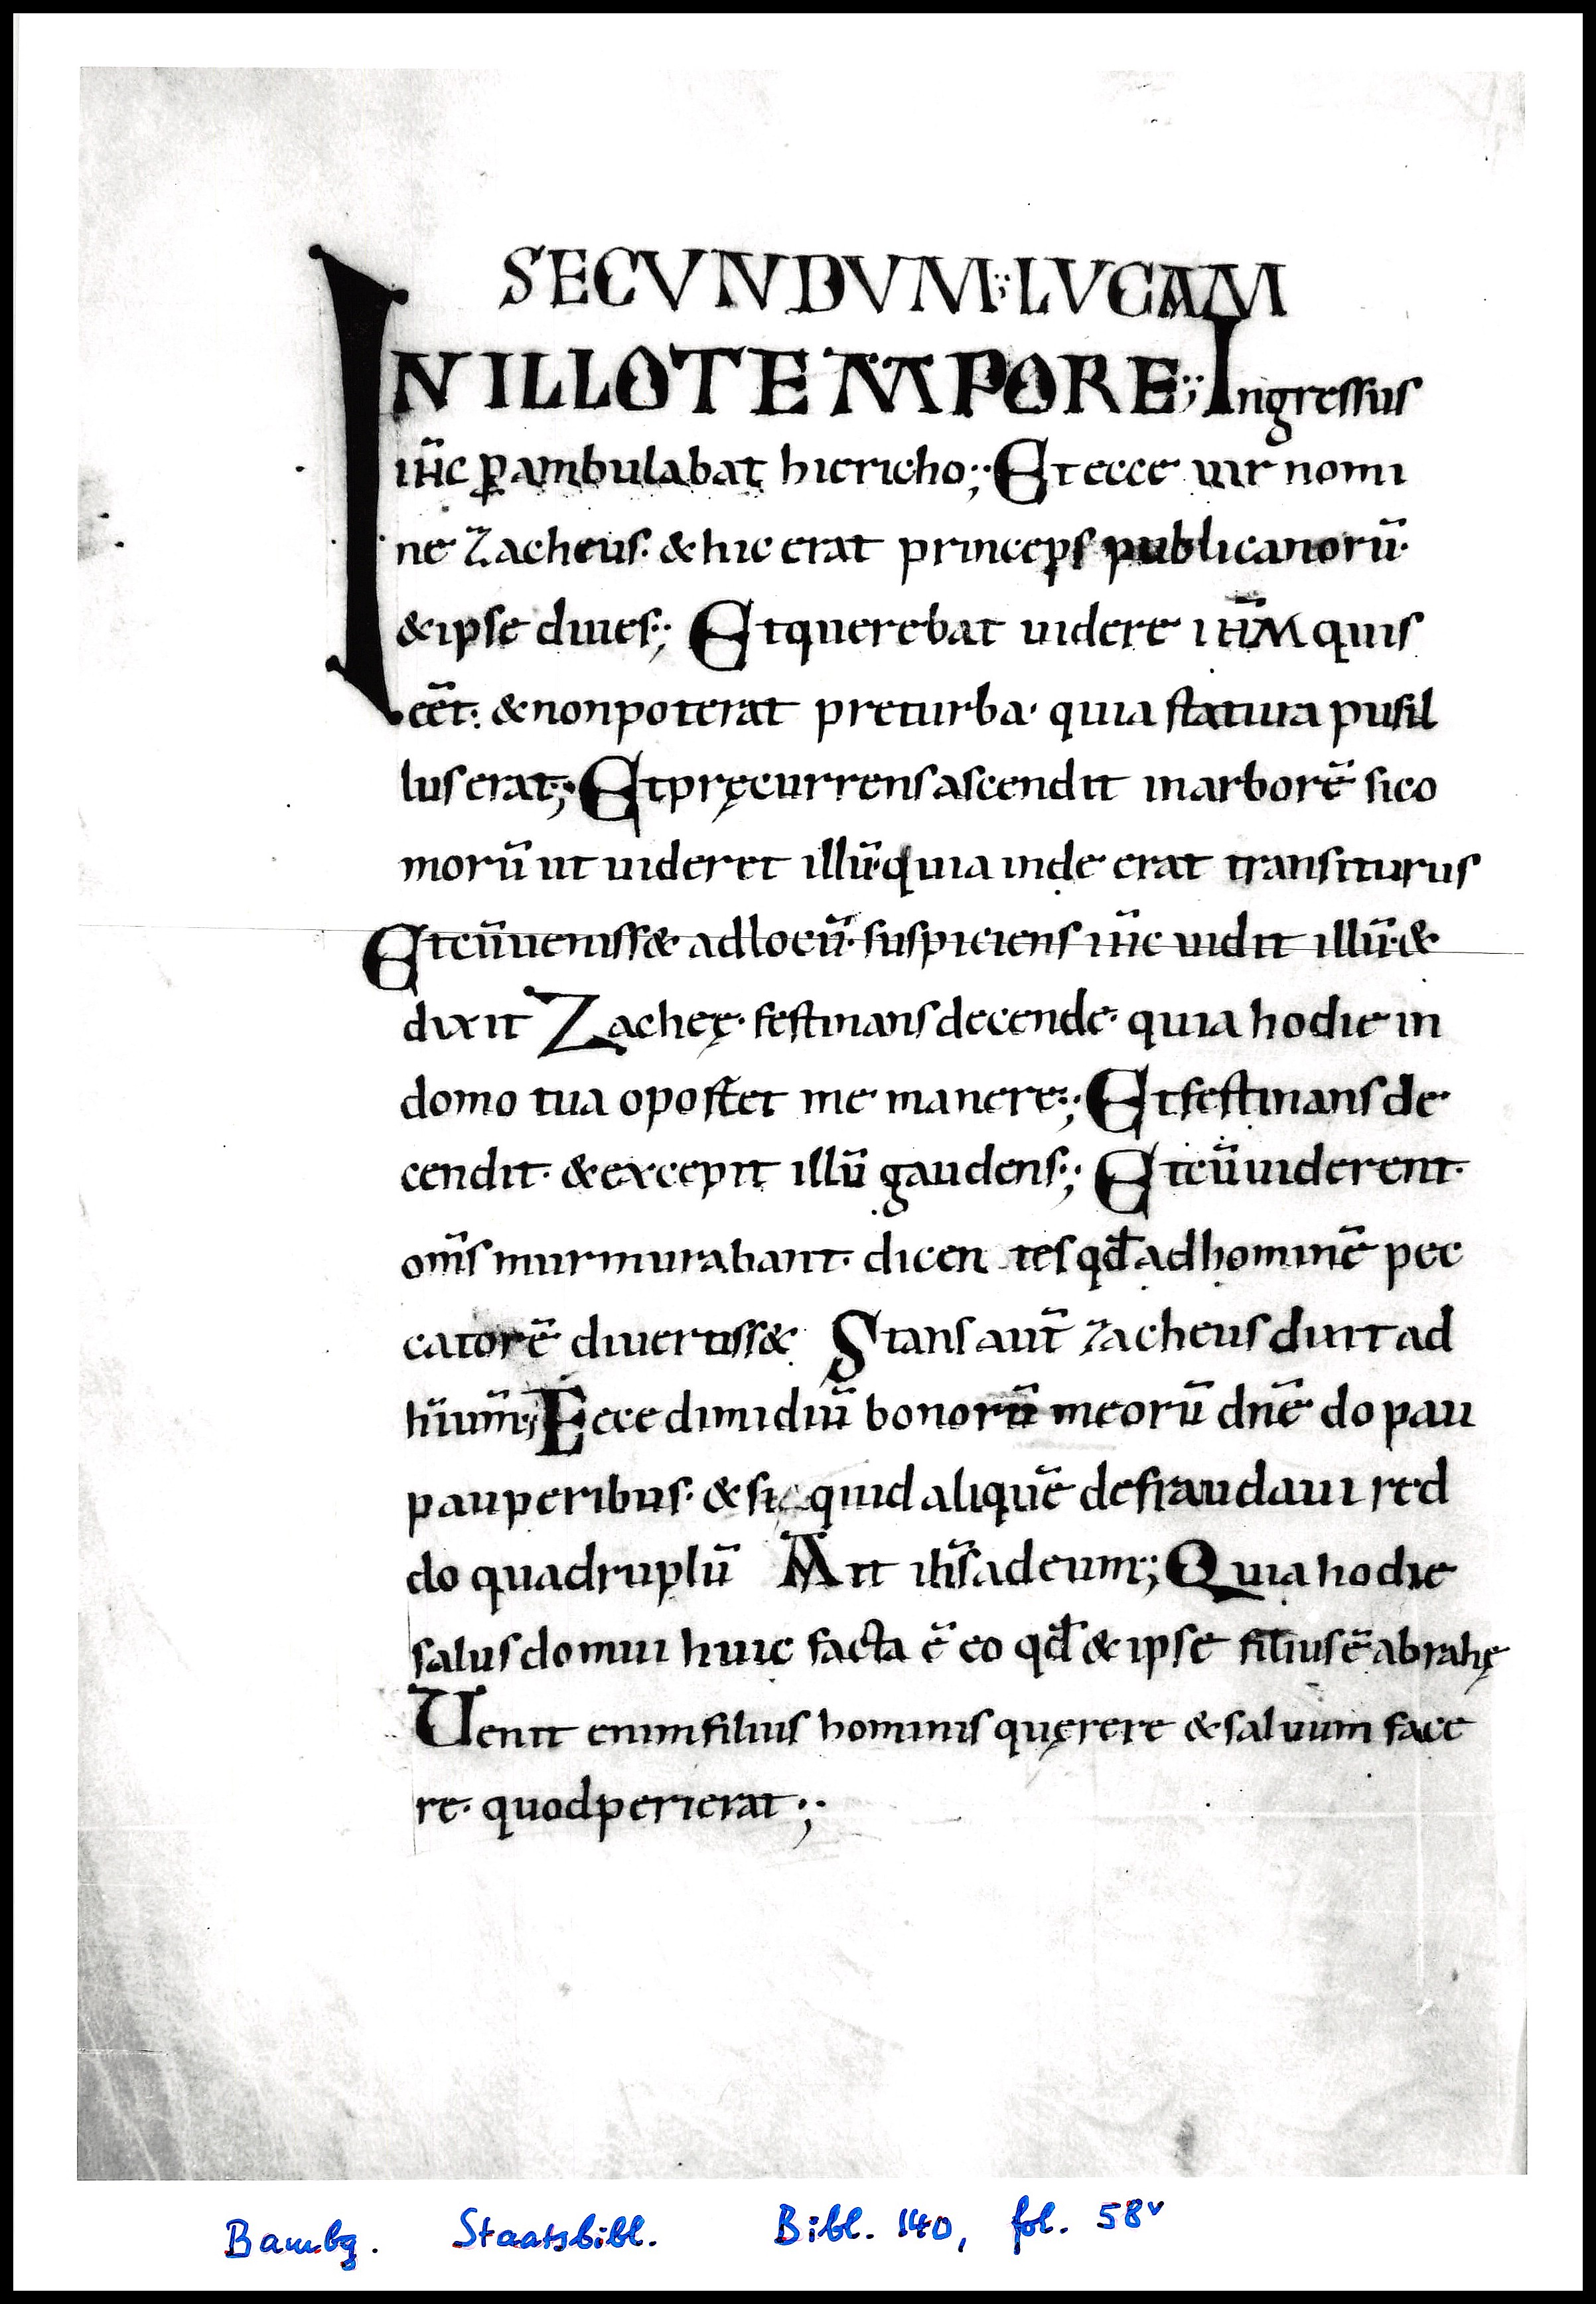 SECVNDVM·;·LVCAM
IN ILLO TEMPORE·;· Ingressus
ih̅c p̱ambulabat hiericho;· Et ecce uir nomi
ne Zacheus· & hic erat princeps publicanorū·
& ipse diues·;· Et querebat uidere ih̅M quis
eēt· & non poterat pre turba· quia statura pusil
lus erat;· Et pręcurrens ascendit in arborē sico
morū ut uideret illū· quia inde erat transiturus
Et cū uenisset ad locū· suspiciens ih̅c uidit illū· &
dixit Zachę· festinans decende· quia hodie in
domo tua oportet me manere·;· Et festinans de
cendit· & excepit illū gaudens·;· Et cū uiderent·
om̅s murmurabant· dicen tes qđ ad hominē pec
catorē diuertiss& Stans aut̅ Zacheus dixit ad
ih̅um·; Ecce dimidiū bonorū meorū dn̅e do pau
pauperibus· & si quid aliquē defraudaui red
do quadruplū Ait ih̅s ad eum·; Quia hodie
salus domui huic facta ē eo qđ & ipse filius ē abrahę
Uenit enim filius hominis quęrere & saluum face
re· quod perierat·;·
Bambg. Staatsbibl. Bibl. 140, fol. 58v